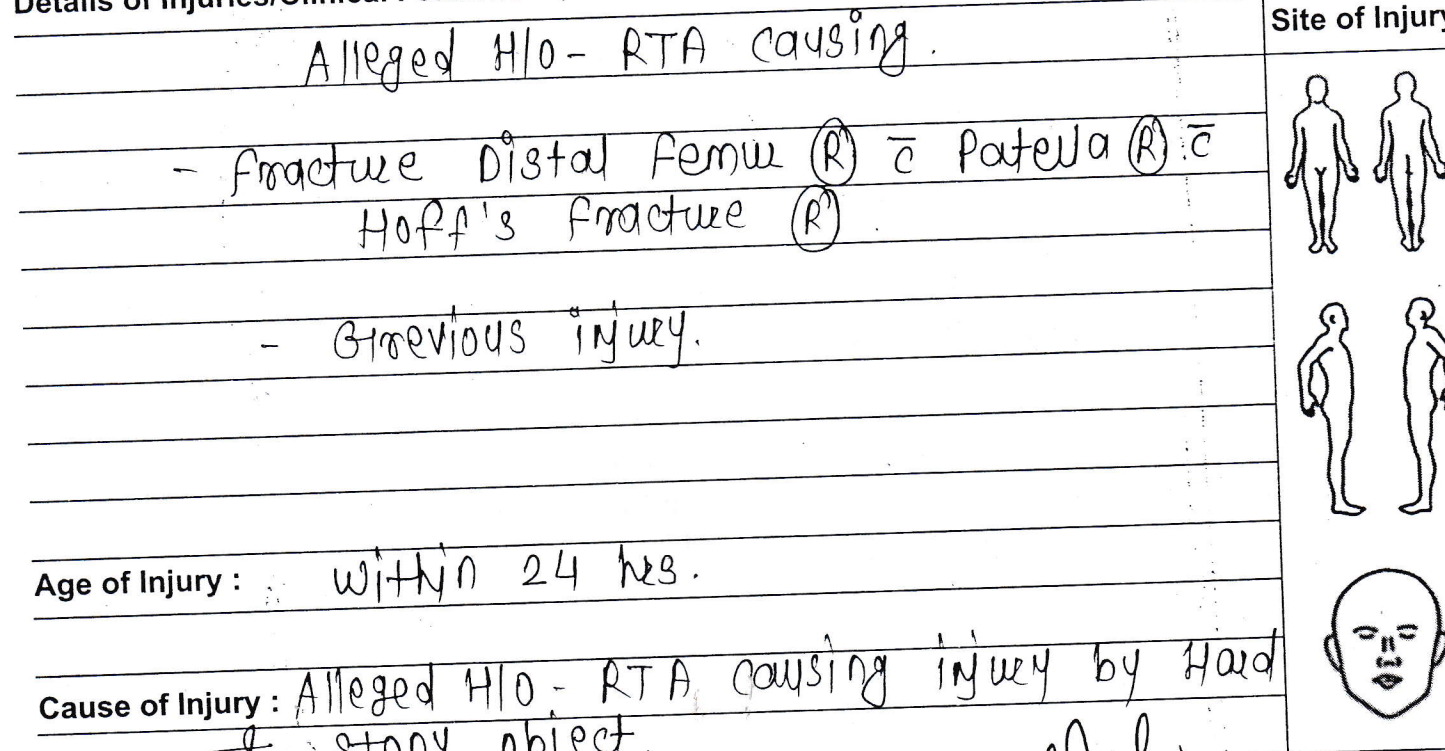 Details of Injuries/Clinical
Site of Injury
Alleged H/O - RTA causing.
- Fracture Distal Femur (R) c̄ Patella (R) c̄
Hoff's Fracture (R).
- Grevious injury.
Age of Injury : Within 24 hrs.
Cause of Injury : Alleged H/O - RTA causing injury by Hard
object